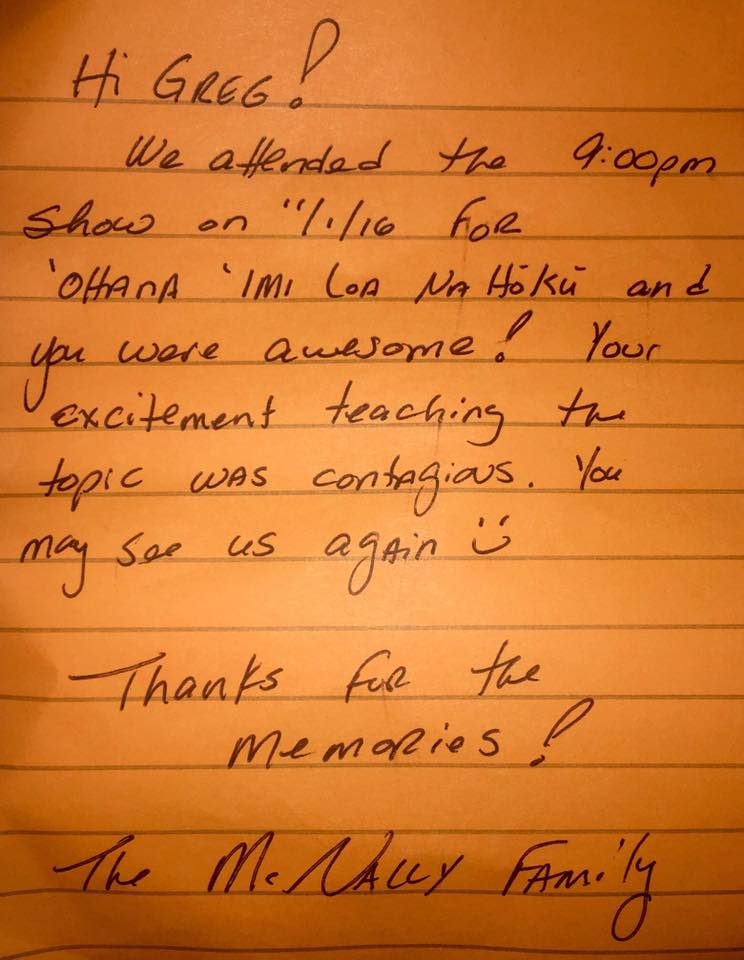 Hi GREG!
We attended the 9:00pm
show on 11/1/16 FOR
'OHANA 'IMI LOA NA HŌKŪ and
you were awesome! Your
excitement teaching the
topic was contagious. You
may see us again :)
Thanks for the
memories!
The McNALLY FAMily